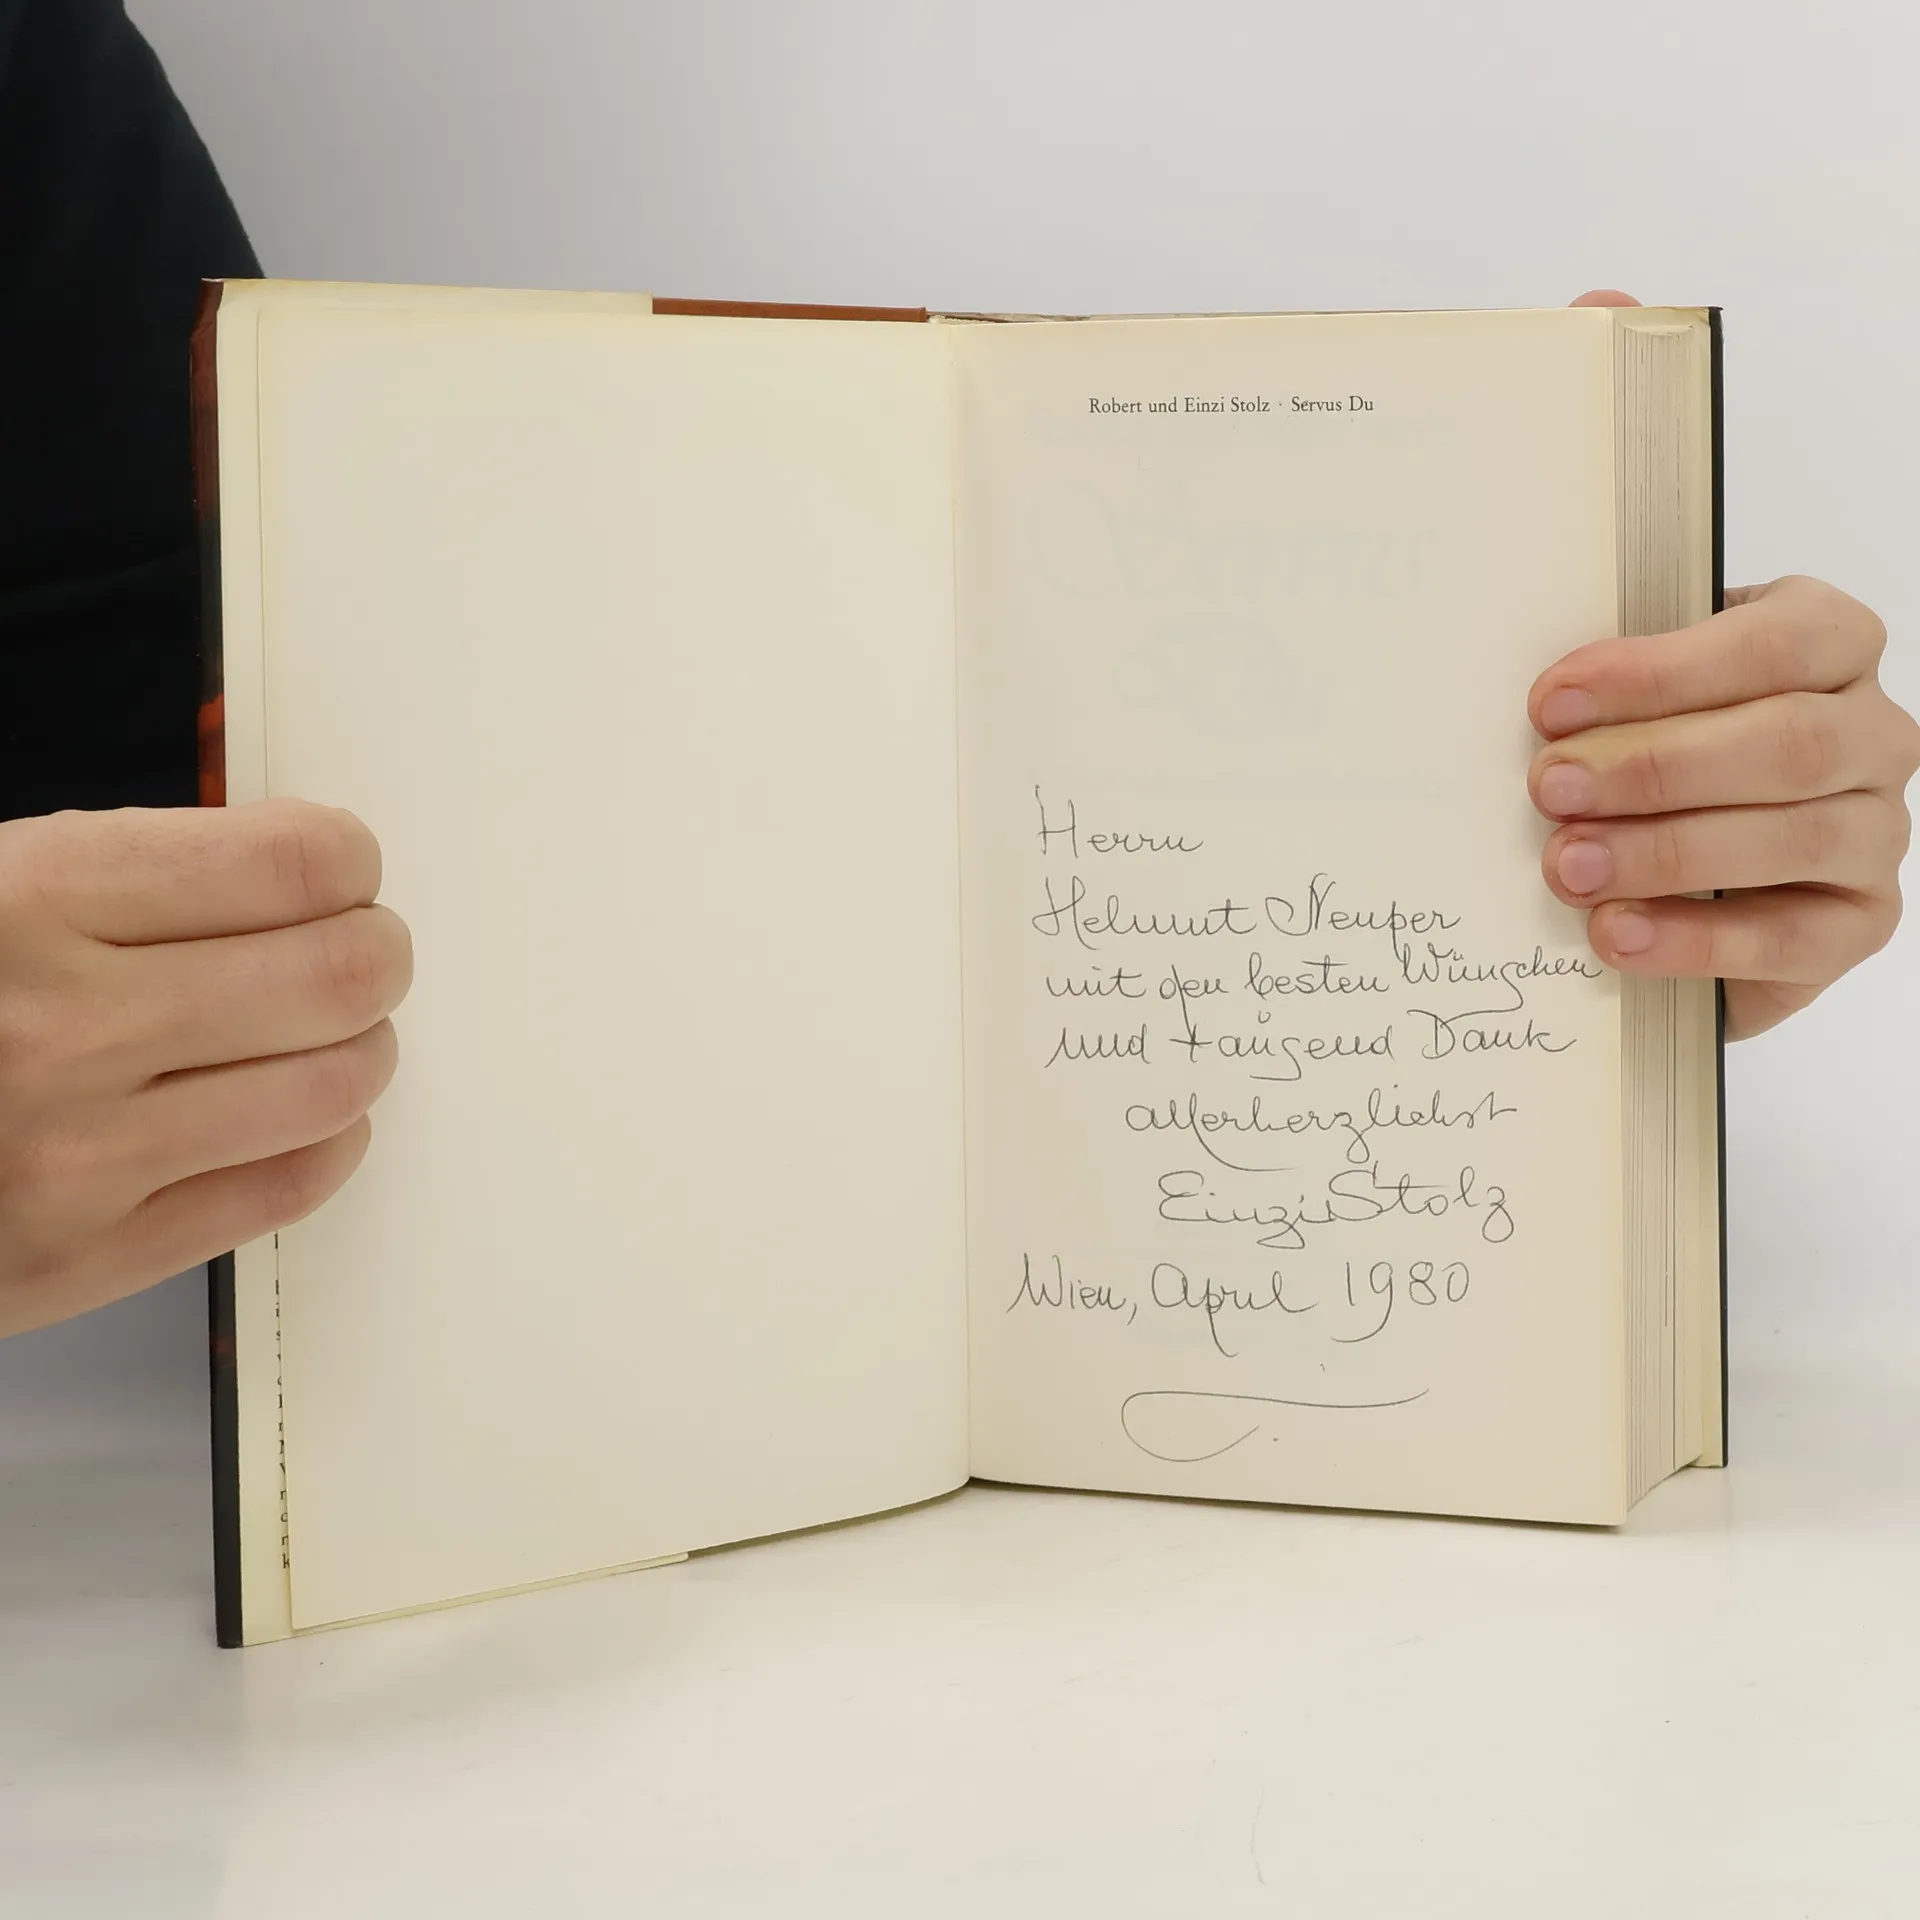 Robert und Einzi Stolz · Servus Du
Herrn
Helmut Neuper
mit den besten Wünschen
und tausend Dank
allerherzlichst
Einzi Stolz
Wien, April 1980